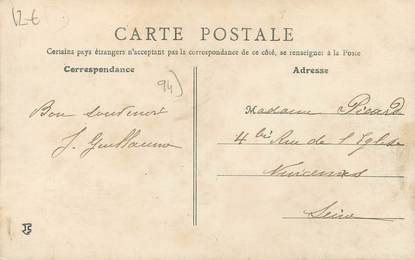 12€
CARTE POSTALE
Certains pays étrangers n'acceptant pas la correspondance de ce côté, se renseigner à la Poste
Correspondance
Adresse
94)
Bon souvenir
J. Guillaume
Madame Picard
4 bis Rue de l'Eglise
Vincennes
Seine